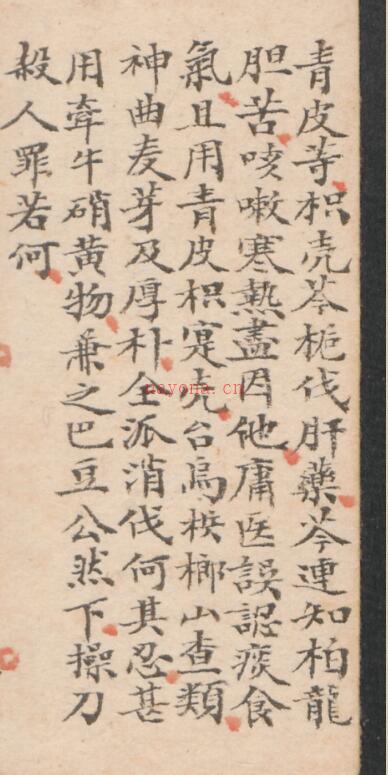 青皮等枳壳芩栀伐肝藥芩連知柏龍
胆苦咳嗽寒熱盡因他庸医誤認痰食
氣且用青皮枳寔壳台烏梹榔山查類
神曲麦芽及厚朴全派消伐何其忍甚
用牽牛硝黄物兼之巴豆公然下操刀
殺人罪若何
nayona.cn